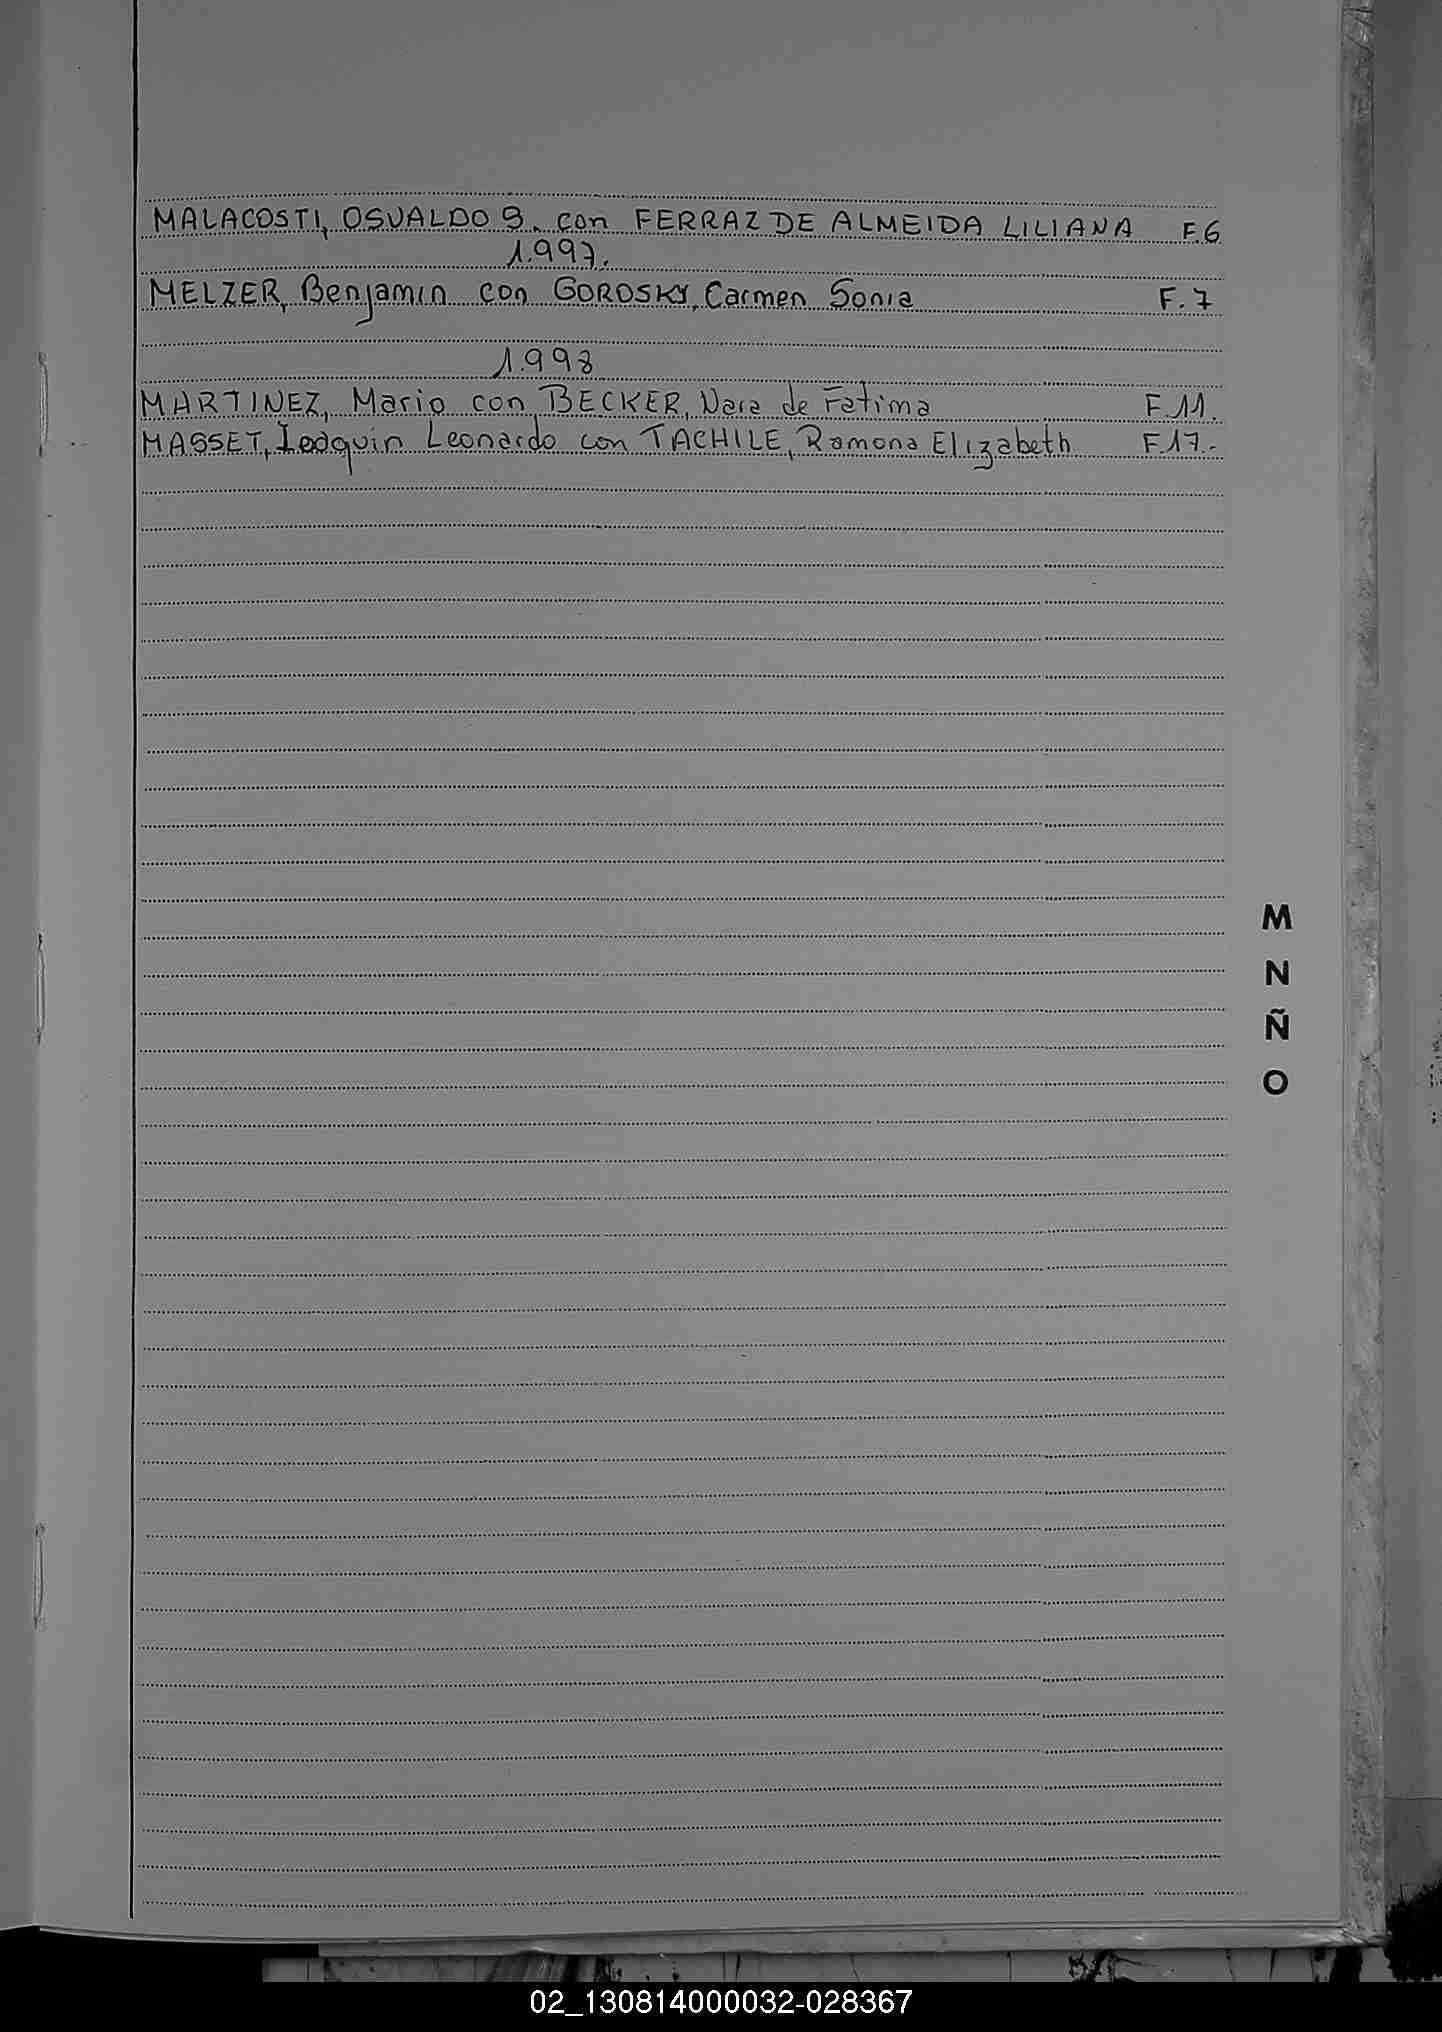 MALACOSTI, OSVALDO S. con FERRAZ DE ALMEIDA LILIANA F.6
1.997.
MELZER, Benjamin con GOROSKY, Carmen Sonia F.7
1.998
MARTINEZ, Mario con BECKER, Nara de Fatima F.11.
MASSET, Ioaquin Leonardo con TACHILE, Ramona Elizabeth F.17.-
M
N
Ñ
O
02_130814000032-028367